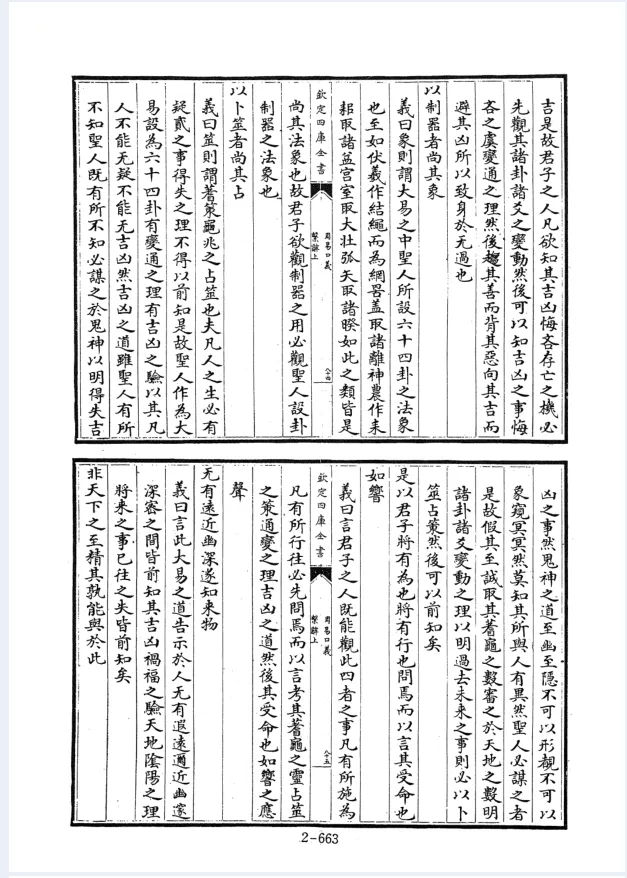 吉是故君子之人凡欲知其吉凶悔吝存亡之機必
先觀其諸卦諸爻之變動然後可以知吉凶之事悔
吝之虞變通之理然後趨其善而背其惡向其吉而
避其凶所以致身於无過也
以制器者尚其象
義曰象則謂大易之中聖人所設六十四卦之法象
也至如伏羲作結繩而為網罟盖取諸離神農作耒
耜取諸益宫室取大壮弧矢取諸睽如此之類皆是
欽定四庫全書
周易口義
繫辭上
八十四
尚其法象也故君子欲觀制器之用必觀聖人設卦
制器之法象也
以卜筮者尚其占
義曰筮則謂蓍策龜兆之占筮也夫凡人之生必有
疑貳之事得失之理不得以前知是故聖人作為大
易設為六十四卦有變通之理有吉凶之驗以其凡
人不能无疑不能无吉凶然吉凶之道雖聖人有所
不知聖人既有所不知必謀之於鬼神以明得失吉
凶之事然鬼神之道至幽至隠不可以形覩不可以
象窺冥冥然莫知其所與人有異然聖人必謀之者
是故假其至誠取其蓍龜之數審之於天地之數明
諸卦諸爻變動之理以明過去未来之事則必以卜
筮占策然後可以前知矣
是以君子將有為也將有行也問焉而以言其受命也
如響
義曰言君子之人既能觀此四者之事凡有所施為
欽定四庫全書
周易口義
繫辭上
八十五
凡有所行往必先問焉而以言考其蓍龜之靈占筮
之策通變之理吉凶之道然後其受命也如響之應
聲
无有遠近幽深遂知来物
義曰言此大易之道告示於人无有遐遠邇近幽邃
深密之間皆前知其吉凶禍福之驗天地隂陽之理
將来之事已往之失皆前知矣
非天下之至精其孰能與於此
2-663